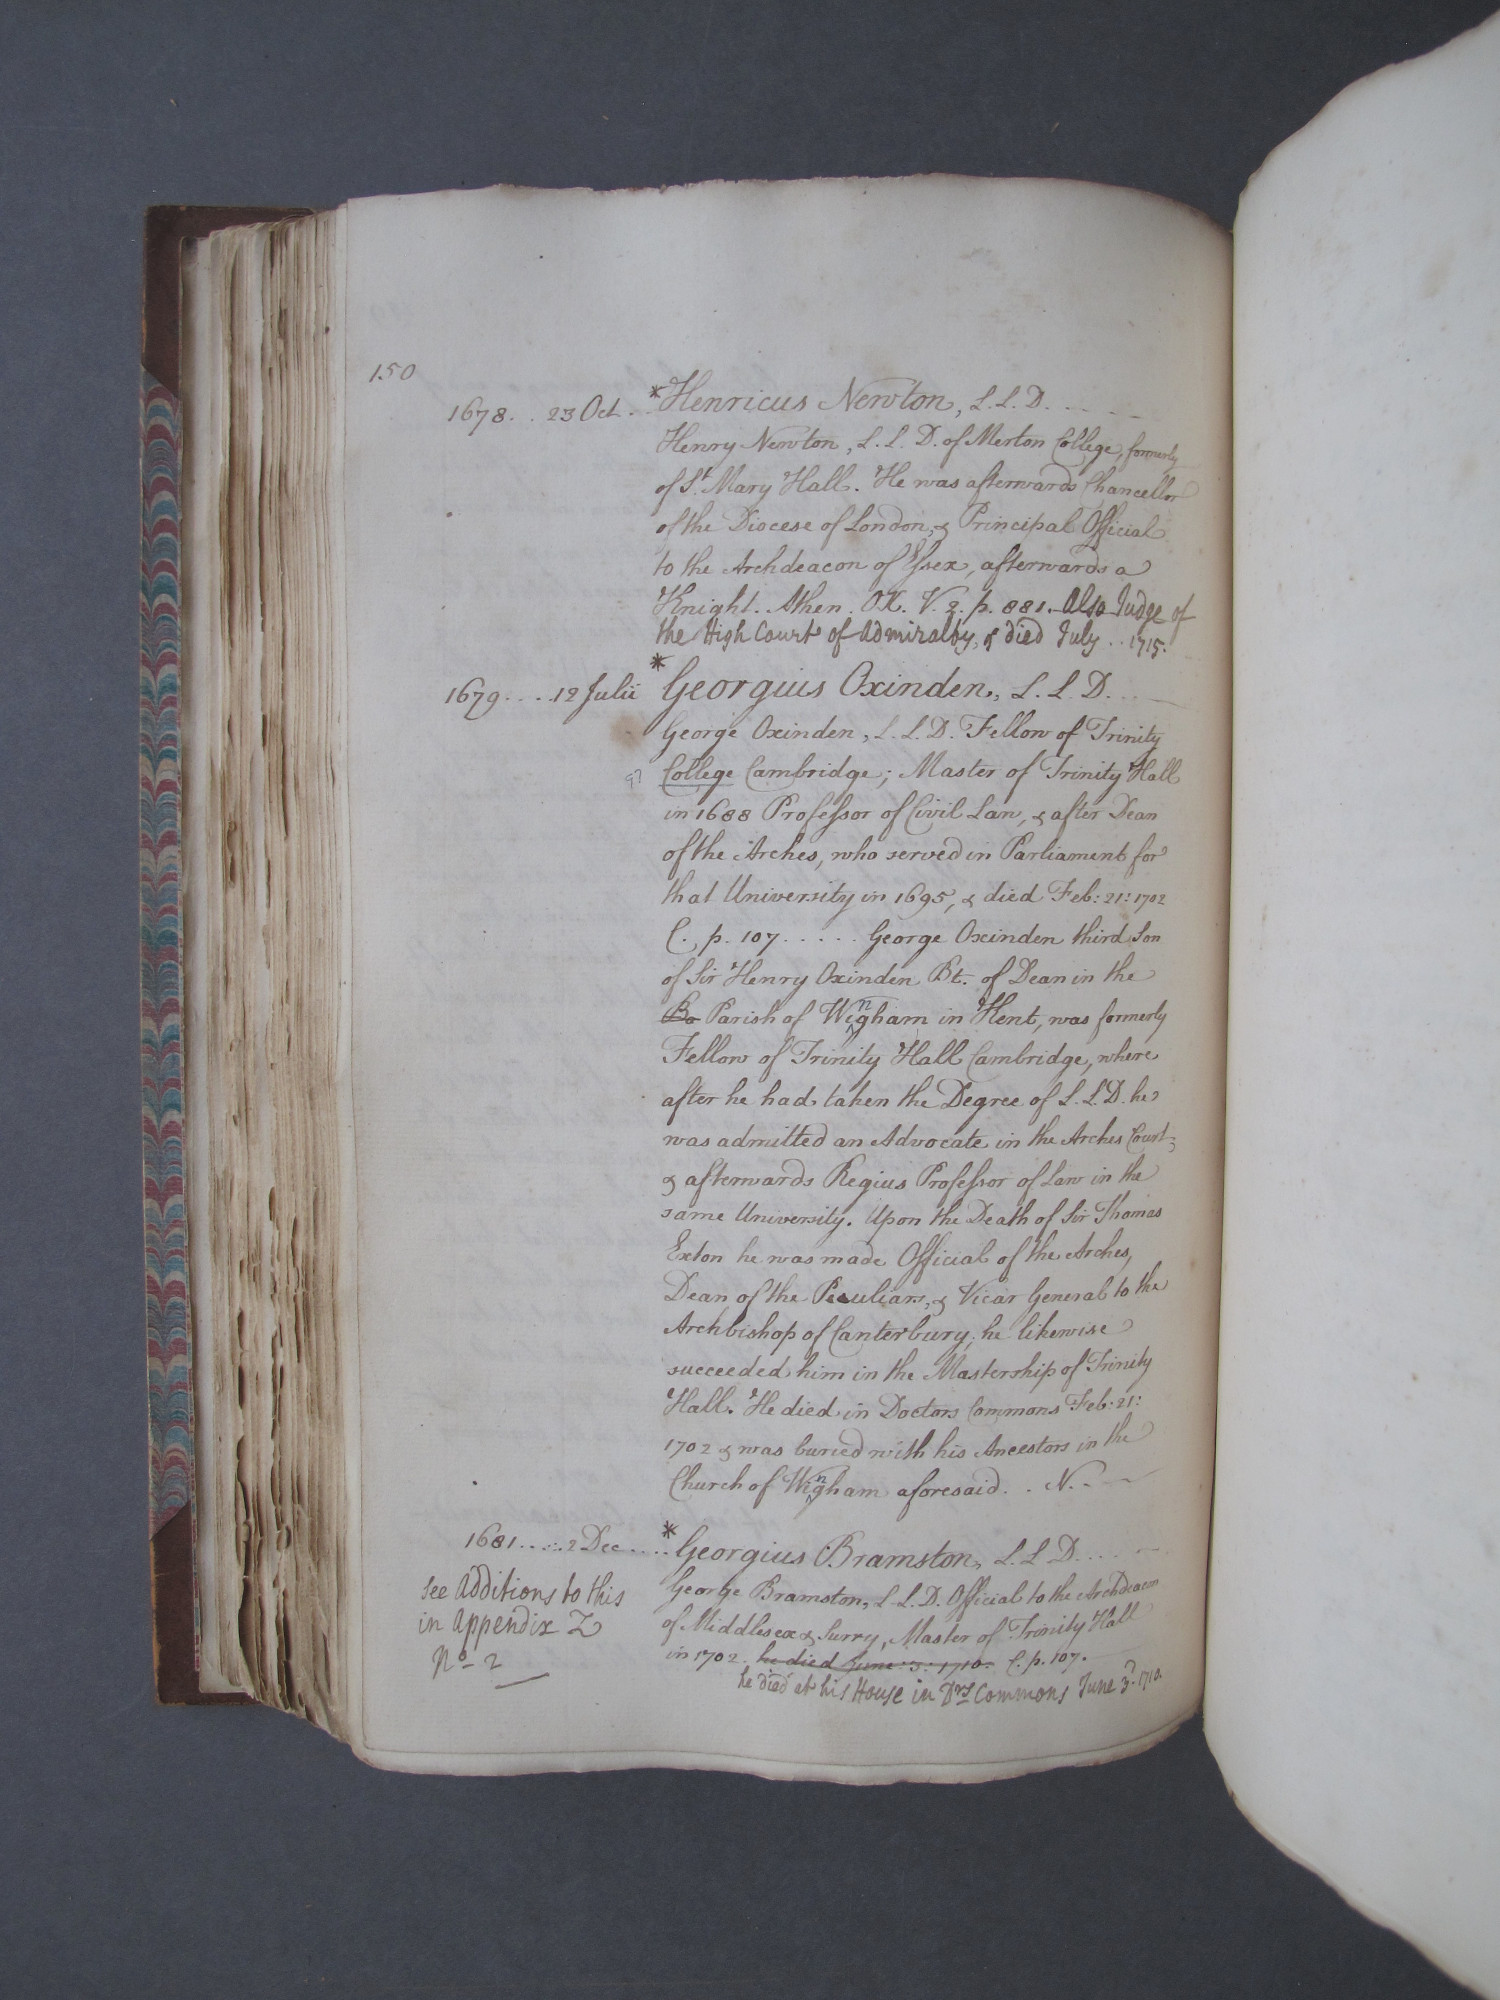 150
1678 . . 23 Oct . . *Henricus Newton, L. L. D. . . . .
Henry Newton, L. L. D. of Merton College, formerly
of St. Mary Hall. He was afterwards Chancellor
of the Diocese of London, & Principal Official
to the Archdeacon of Essex, afterwards a
Knight. Athen. OX. V. 2. p. 881. also Judge of
the High Court of Admiralty, & died July . . 1715.
1679 . . . . 12 Julii *Georgius Oxinden, L. L. D. . . .
George Oxinden, L. L. D. Fellow of Trinity
q? College Cambridge; Master of Trinity Hall
in 1688 Professor of Civil Law, & after Dean
of the Arches, who served in Parliament for
that University in 1695, & died Feb: 21: 1702
C. p. 107 . . . . . George Oxinden third Son
of Sir Henry Oxinden Bt. of Dean in the
Bo Parish of Wingham in Kent, was formerly
Fellow of Trinity Hall Cambridge, where
after he had taken the Degree of L. L. D. he
was admitted an Advocate in the Arches Court;
& afterwards Regius Professor of Law in the
same University. Upon the Death of Sir Thomas
Exton he was made Official of the Arches,
Dean of the Peculiars, & Vicar General to the
Archbishop of Canterbury; he likewise
succeeded him in the Mastership of Trinity
Hall. He died in Doctors Commons Feb: 21:
1702 & was buried with his Ancestors in the
Church of Wingham aforesaid . . N. . .
1681 . . . . . 2 Dec . . . . *Georgius Bramston, L. L. D. . . . .
See Additions to this
in Appendix Z
No. 2
George Bramston, L. L. D. Official to the Archdeacon
of Middlesex & Surry, Master of Trinity Hall
in 1702. he died June: 3: 1710. C. p. 107.
he died at his House in Drs Commons June 3d. 1710.